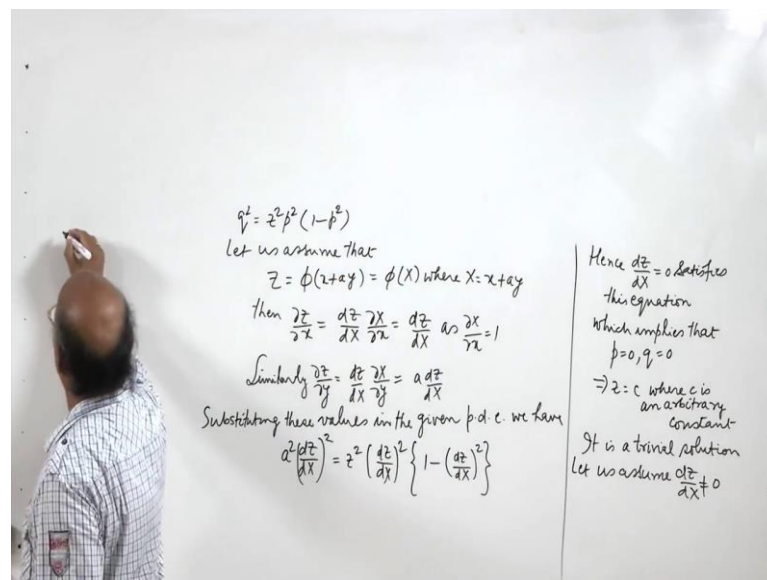 q² = z²p²(1-p²)
Let us assume that
Z = φ(x+ay) = φ(X) where X = x+ay
then ∂z/∂x = dz/dX ∂X/∂x = dz/dX as ∂X/∂x = 1
Similarly ∂z/∂y = dz/dX ∂X/∂y = a dz/dX
Substituting these values in the given p.d.e. we have
a²(dz/dX)² = z²(dz/dX)² {1-(dz/dX)²}
Hence dz/dX = 0 satisfies
this equation
which implies that
p=0, q=0
⇒ z = c where c is
an arbitrary
constant
It is a trivial solution
Let us assume dz/dX ≠ 0